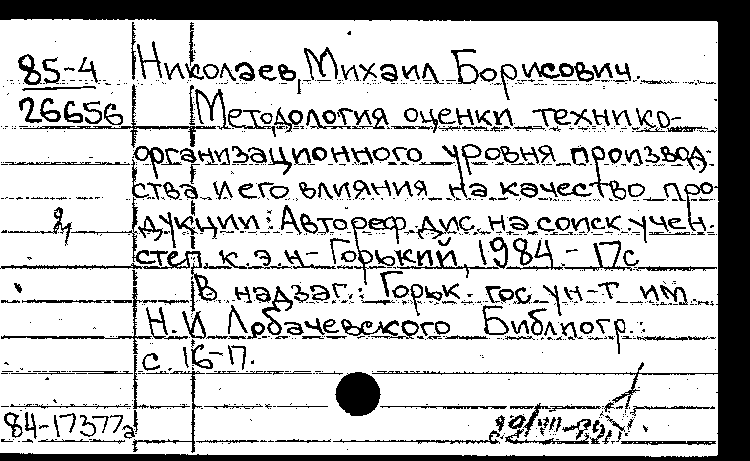 85-4
26656
Николаев, Михаил Борисович.
Методология оценки технико-
организационного уровня производ-
ства и его влияния на качество про-
дукции: Автореф. дис. на соиск. учен.
степ. к. э. н.- Горький, 1984.- 17с
В надзаг.: Горьк. гос. ун-т им.
Н.И Лобачевского Библиогр.:
с. 16-17.
84-17377а